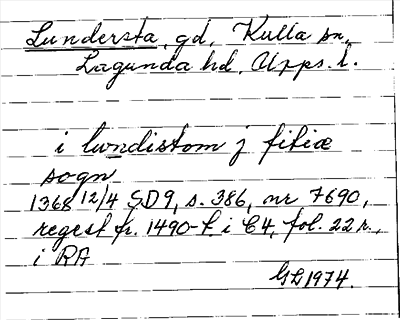 Lundersta, gd, Kulla sn,
Lagunda hd, Upps. l.
i lwndistom j fifiæ
sogn
1368 12/4 SD9, s. 386, nr 7690,
regest fr. 1490-t. i C4, fol. 22 r.,
i RA
GL 1974.